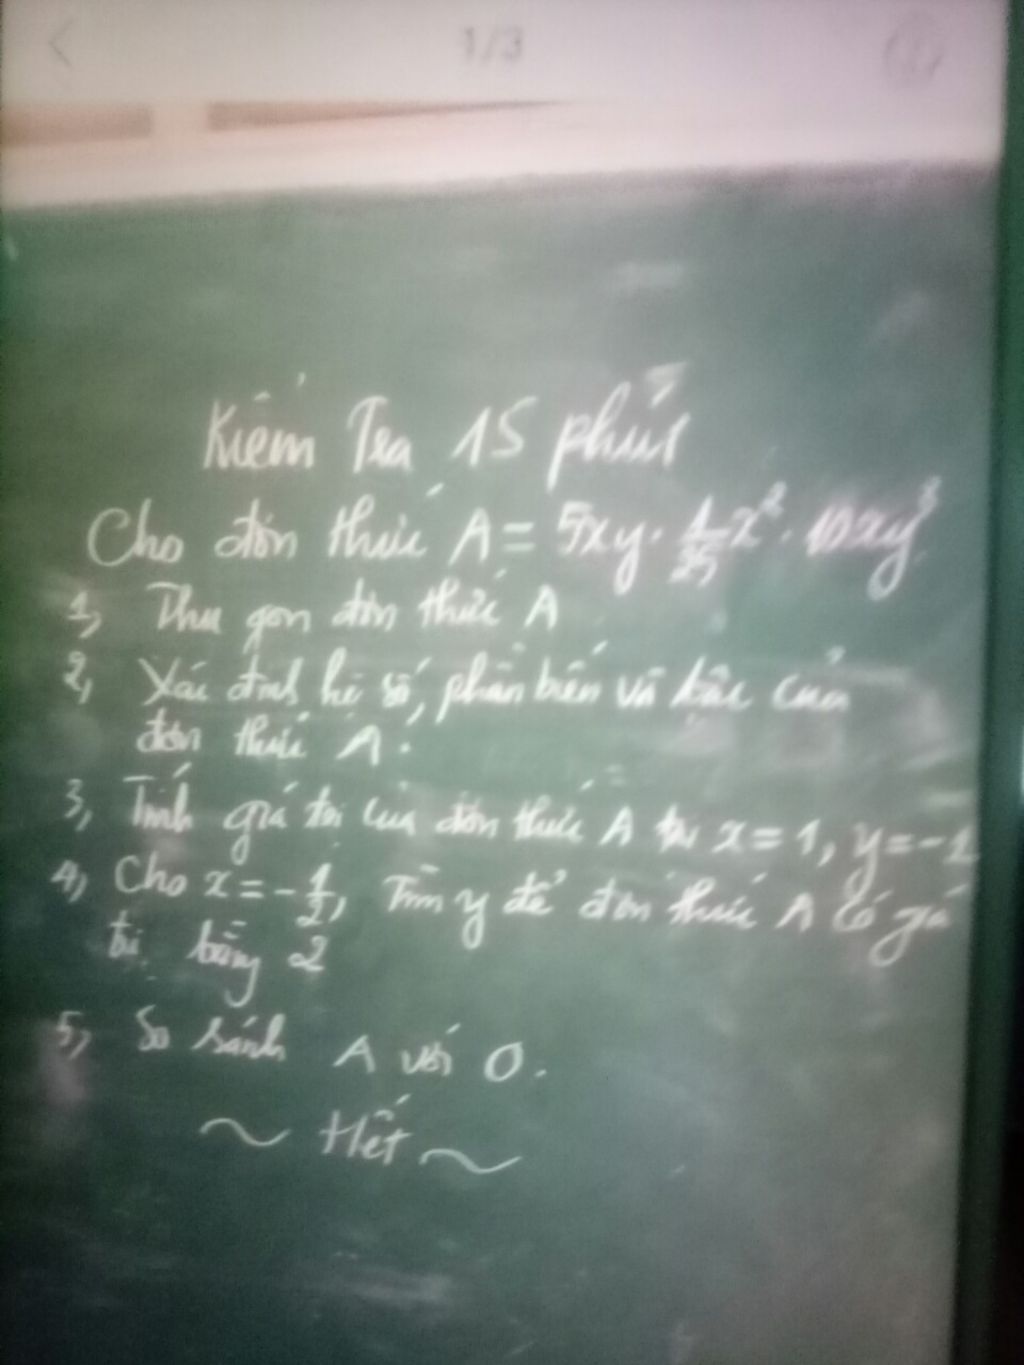 1/3
Kiểm Tra 15 phút
Cho đơn thức A = 5xy · 1/25 x² · 10xy³
1, Thu gọn đơn thức A
2, Xác định hệ số, phần biến và bậc của
đơn thức A.
3, Tính giá trị của đơn thức A tại x = 1, y = -1
4, Cho x = - 1/2, Tìm y để đơn thức A có giá
trị bằng 2
5, So sánh A với 0.
~ Hết ~